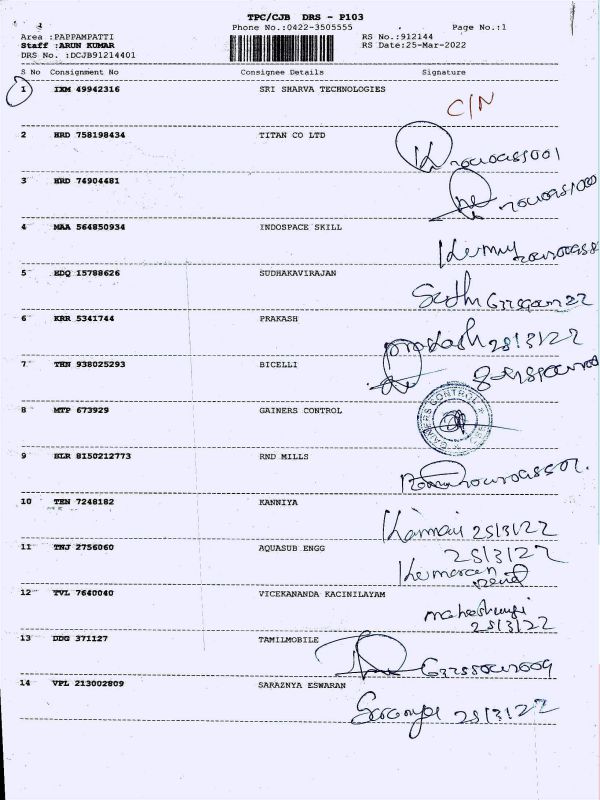 TPC/CJB DRS - P103
Phone No.:0422-3505555 Page No.:1
Area :PAPPAMPATTI RS No.:912144
Staff :ARUN KUMAR RS Date:25-Mar-2022
DRS No. :DCJB91214401
S No Consignment No Consignee Details Signature
1 IXM 49942316 SRI SHARVA TECHNOLOGIES
C/N
2 HRD 758198434 TITAN CO LTD
3 HRD 74904481
4 MAA 564850934 INDOSPACE SKILL
5 HDQ 15788626 SUDHAKAVIRAJAN
6 KRR 5341744 PRAKASH
Prakash 25/3/22
7 THN 938025293 BICELLI
8 MTP 673929 GAINERS CONTROL
GAINERS CONTROL
9 BLR 8150212773 RND MILLS
10 TEN 7248182 KANNIYA
25/3/22
11 TNJ 2756060 AQUASUB ENGG
25/3/22
12 TVL 7640040 VICEKANANDA KACINILAYAM
25/3/22
13 DDG 371127 TAMILMOBILE
14 VPL 213002809 SARAZNYA ESWARAN
Saranya 25/3/22